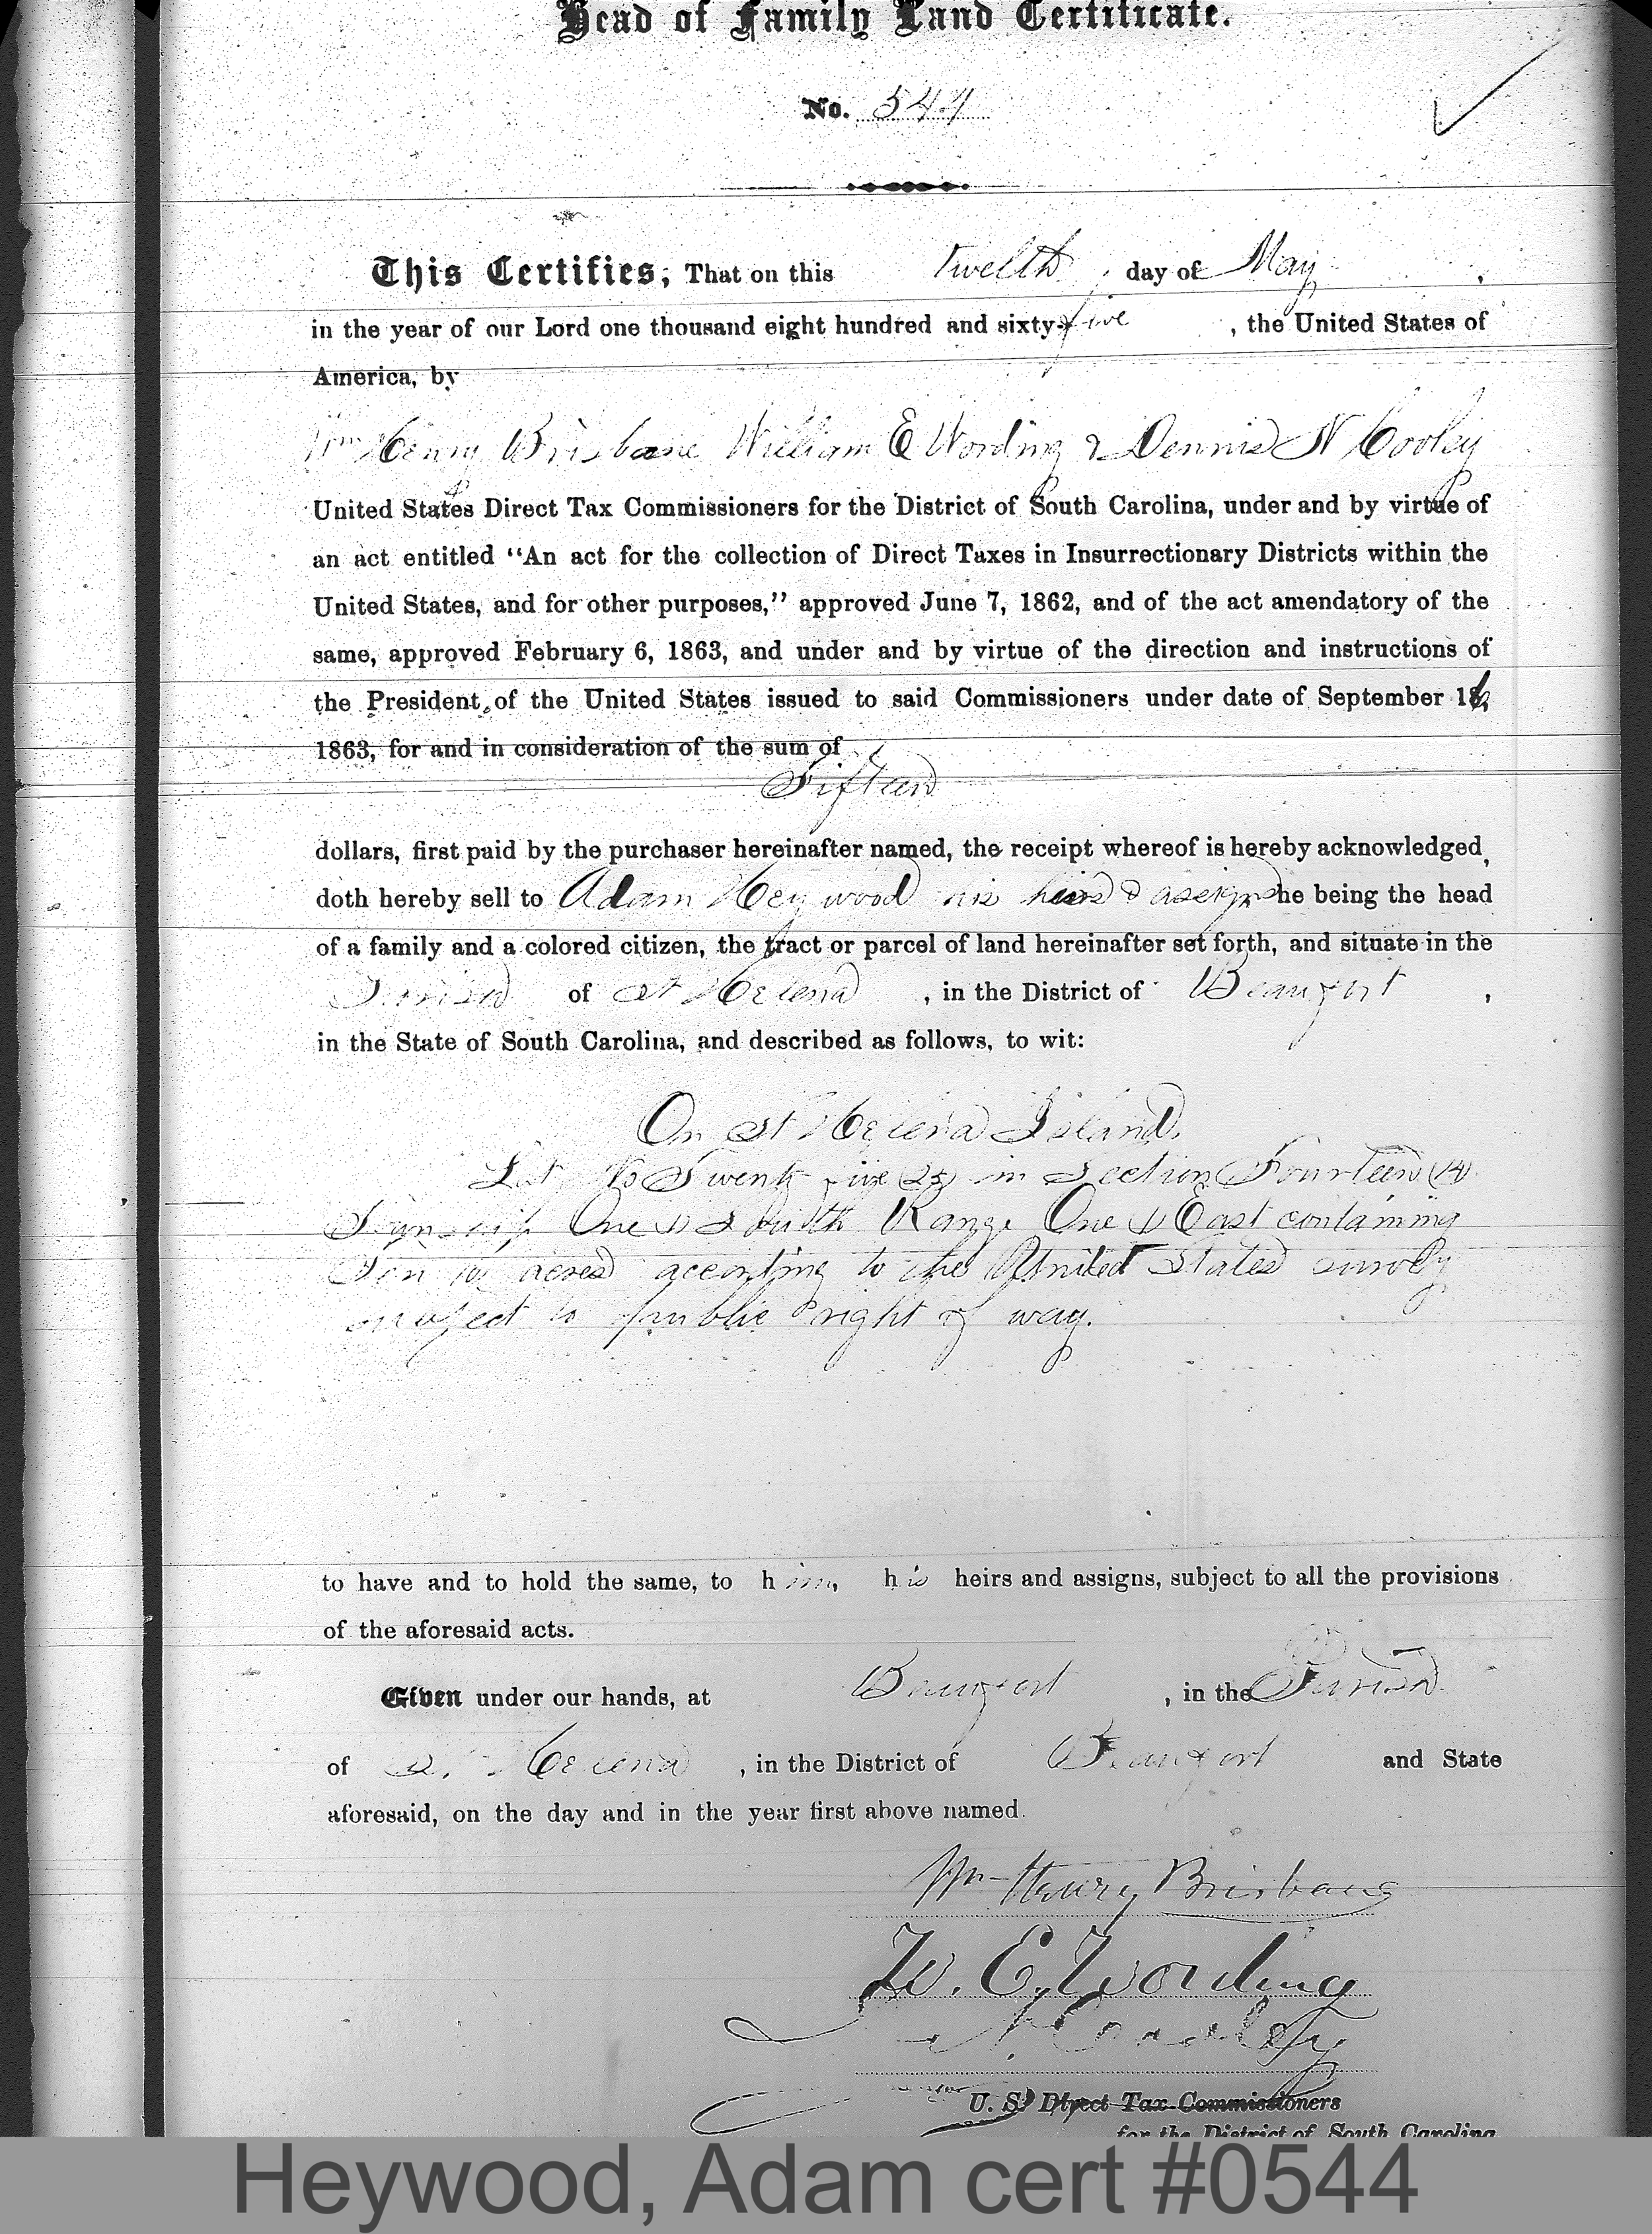 Head of Family Land Certificate.
No. 544
This Certifies, That on this twelth day of May,
in the year of our Lord one thousand eight hundred and sixty-five, the United States of
America, by
Wm Henry Brisbane William E Wording & Dennis N Cooley
United States Direct Tax Commissioners for the District of South Carolina, under and by virtue of
an act entitled "An act for the collection of Direct Taxes in Insurrectionary Districts within the
United States, and for other purposes," approved June 7, 1862, and of the act amendatory of the
same, approved February 6, 1863, and under and by virtue of the direction and instructions of
the President of the United States issued to said Commissioners under date of September 16,
1863, for and in consideration of the sum of
Fifteen
dollars, first paid by the purchaser hereinafter named, the receipt whereof is hereby acknowledged,
doth hereby sell to Adam Heywood his heirs & assigns he being the head
of a family and a colored citizen, the tract or parcel of land hereinafter set forth, and situate in the
Parish of St Helena, in the District of Beaufort,
in the State of South Carolina, and described as follows, to wit:
On St Helena Island.
Lot No Twenty five (25) in Section Fourteen (14)
Township One (1) South Range One (1) East containing
Ten (10) acres according to the United States survey
subject to public right of way.
to have and to hold the same, to him, his heirs and assigns, subject to all the provisions
of the aforesaid acts.
Given under our hands, at Beaufort, in the Parish
of St. Helena, in the District of Beaufort and State
aforesaid, on the day and in the year first above named.
Wm Henry Brisbane
W. E. Wording
D. N. Cooley
U. S. Direct Tax Commissioners
for the District of South Carolina
Heywood, Adam cert #0544